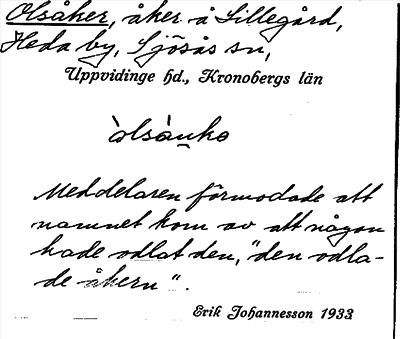 Olsåker, åker å Lillegård,
Heda by, Sjösås sn,
Uppvidinge hd., Kronobergs län
Meddelaren förmodade att
namnet kom av att någon
hade odlat den, "den odla-
de åkern".
Erik Johannesson 1933